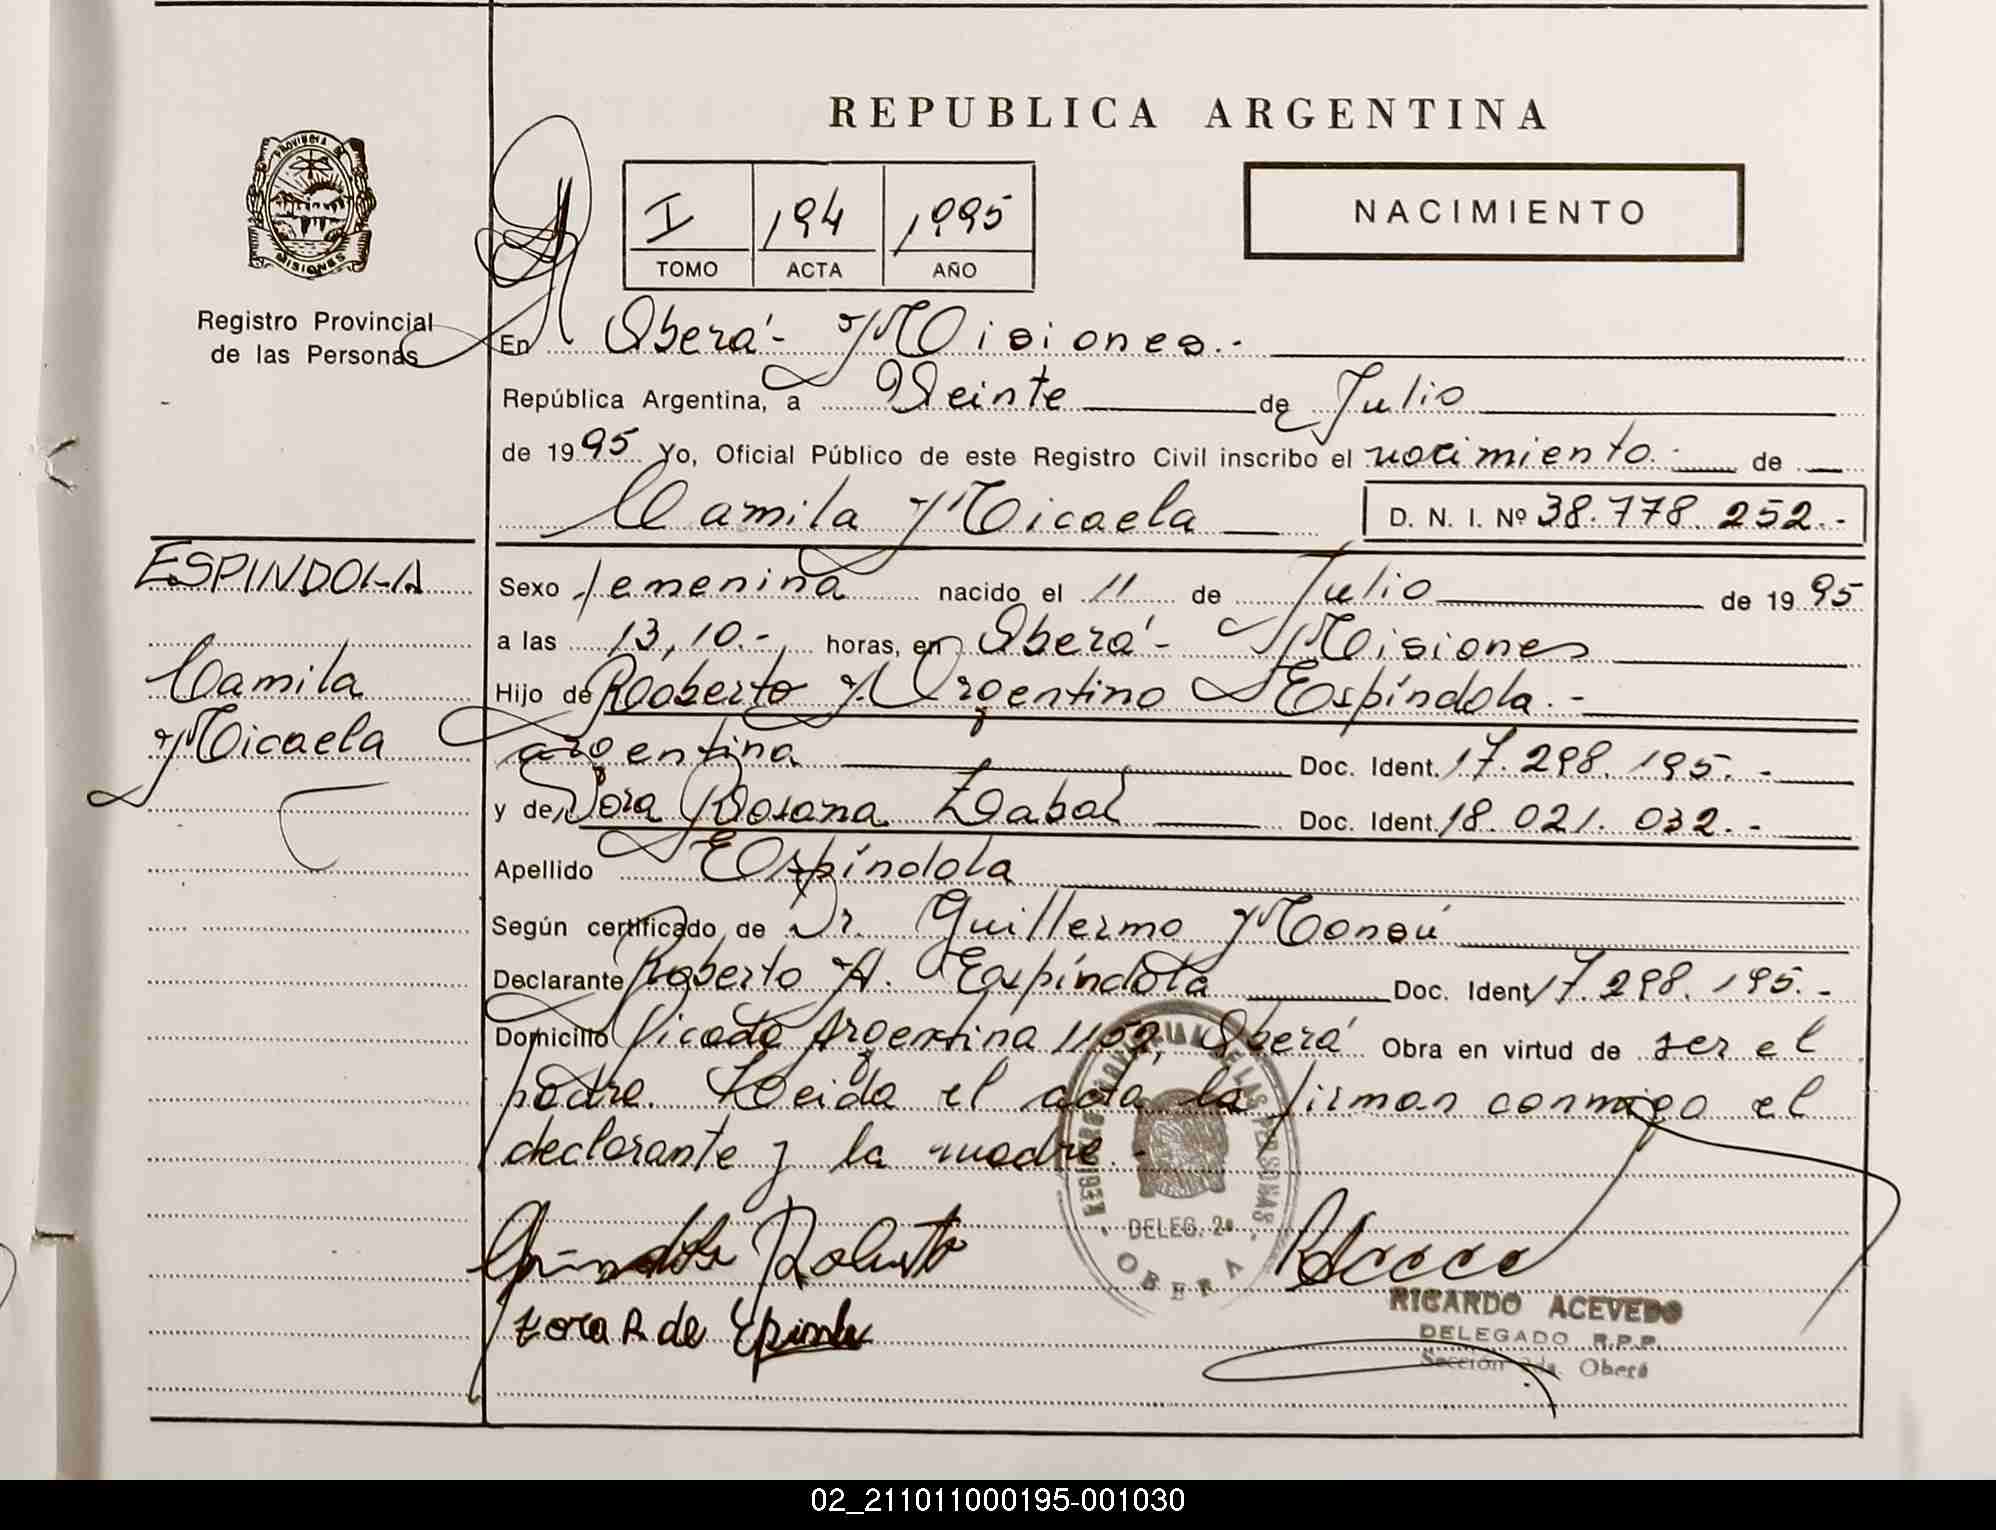 REPUBLICA ARGENTINA
PROVINCIA DE
MISIONES
I 194 1995
TOMO ACTA AÑO
NACIMIENTO
Registro Provincial
de las Personas
En Oberá - Misiones.-
República Argentina, a Veinte de Julio
de 1995 Yo, Oficial Público de este Registro Civil inscribo el nacimiento.- de
Camila Micaela D. N. I. Nº 38.778.252.-
ESPINDOLA
Camila
Micaela
Sexo femenina nacido el 11 de Julio de 1995
a las 13,10.- horas, en Oberá - Misiones
Hijo de Roberto Argentino Espíndola.-
argentina Doc. Ident. 17.298.195.-
y de Rosana Zabal Doc. Ident. 18.021.032.-
Apellido Espíndola
Según certificado de Dr. Guillermo
Declarante Roberto A. Espíndola Doc. Ident 17.298.195.-
Domicilio Picada Argentina 1152, Oberá Obra en virtud de ser el
padre. Leida el acta la firman conmigo el
declarante y la madre.-
REGISTRO PROVINCIAL DE LAS PERSONAS
DELEG. 2a
OBERA
Espindola Roberto
R de
RICARDO ACEVEDO
DELEGADO R.P.P.
Sección 2da. Oberá
02_211011000195-001030